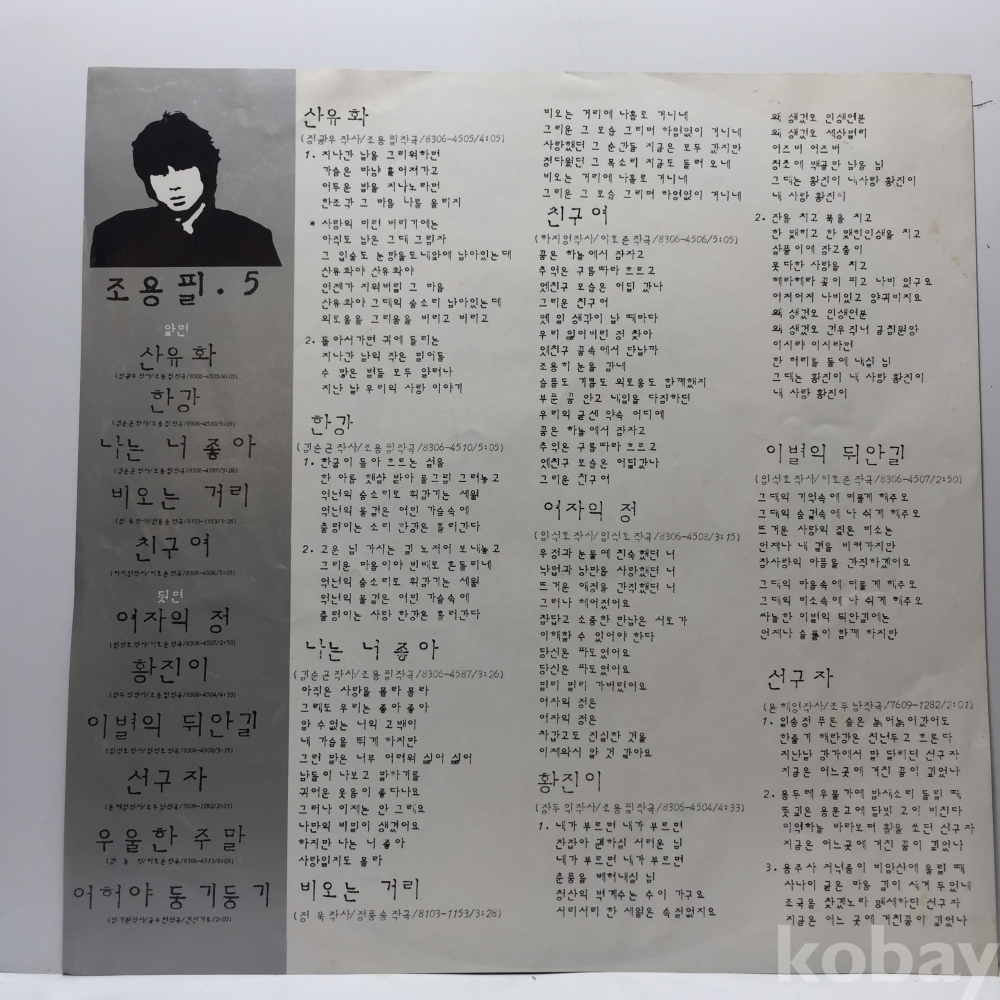 조용필.5
앞면
산유화
한강
나는 너 좋아
비오는 거리
친구여
뒷면
여자의 정
황진이
이별의 뒤안길
선구자
우울한 주말
어허야 둥기둥기
산유화
(정광우작사/조용필작곡/8306-4505/4:05)
1. 지나간 날을 그리워하면
가슬은 마냥 흩어져가고
어두운 밤을 지나노라면
한조각 그 마음 나를 울리지
* 사랑의 미련 버리기에는
아직도 남은 그대 그림자
그 입술도 눈망울도 내앞에 남아있는데
산유화야 산유화야
언젠가 지워버릴 그 마음
산유화야 그대의 숨소리 남아있는데
외로움을 그리움을 버리고 버리고
2. 돌아서가면 귀에 들리는
지나간 날의 작은 밀어들
수 많은 별들 모두 알려나
지난 날 우리의 사랑 이야기
한강
(김순곤작사/조용필작곡/8306-4510/5:05)
1. 한굽이 돌아 흐르는 설움
한 아름 햇살 받아 물그림 그려놓고
억년의 숨소리로 휘감기는 세월
억년의 물결은 여민 가슴속에
출렁이는 소리 한강은 흘러간다
2. 고운 님 가시는 길 노저어 보내놓고
그리운 마음이야 빈배로 흔들리네
억년의 숨소리로 휘감기는 세월
억년의 물결은 여민 가슴속에
출렁이는 사랑 한강은 흘러간다
나는 너 좋아
(김순곤작사/조용필작곡/8306-4587/3:26)
아직은 사랑을 몰라 몰라
그래도 우리는 좋아 좋아
알 수 없는 너의 고백이
내 가슴을 뛰게 하지만
그런 말은 너무 어려워 싫어 싫어
남들이 나보고 말하기를
귀여운 웃음이 좋다나요
그러나 이제는 안 그래요
나만의 비밀이 생겼어요
하지만 나는 너 좋아
사랑일지도 몰라
비오는 거리
(정 욱작사/정풍송작곡/8103-1153/3:28)
비오는 거리에 나홀로 거니네
그리운 그 모습 그리며 하염없이 거니네
사랑했던 그 순간들 지금은 모두 갔지만
정다웠던 그 목소리 지금도 들려 오네
비오는 거리에 나홀로 거니네
그리운 그 모습 그리며 하염없이 거니네
친구여
(하지영작사/이호준작곡/8306-4506/5:05)
꿈은 하늘에서 잠자고
추억은 구름따라 흐르고
옛친구 모습은 어딜 갔나
그리운 친구여
옛 일 생각이 날 때마다
우리 잃어버린 정 찾아
옛친구 꿈속에서 만날까
조용히 눈을 감네
슬픔도 기쁨도 외로움도 함께했지
부푼 꿈 안고 내일을 다짐하던
우리의 굳센 약속 어디에
꿈은 하늘에서 잠자고
추억은 구름따라 흐르고
옛친구 모습은 어딜갔나
그리운 친구여
여자의 정
(임석호작사/임석호작곡/8306-4508/3:15)
우정과 눈물에 친숙했던 너
낙엽과 낭만을 사랑했던 너
뜨거운 애정을 간직했던 너
그러나 헤어졌어요
참답고 소중한 만남은 서로가
이해할 수 있어야 한다
당신은 파도였어요
당신은 파도였어요
멀리 멀리 가버렸어요
여자의 정은
여자의 정은
차갑고도 진실한 것을
이제와서 알 것 같아요
황진이
(장두익작사/조용필작곡/8306-4504/4:33)
1. 내가 부르면 내가 부르면
잔잡아 권하실 서러운 님
내가 부르면 내가 부르면
춘풍을 베어내실 님
청산의 벽계수는 수이 가구요
서리서리 한 세월은 속절없지요
왜 생겼오 인생연분
왜 생겼오 세상별리
어즈버 어즈버
청초에 백골만 남을 님
그대는 황진이 내사랑 황진이
내 사랑 황진이
2. 잔을 치고 북을 치고
한 맺히고 한 맺힌인생을 치고
살풀이에 장고춤이
못다한 사랑을 치고
헤라헤라 꽃이 피고 나비 있구요
어저어저 나비있고 양귀비지요
왜 생겼오 인생연분
왜 생겼오 견우직녀 금침원앙
이시랴 이시라면
한 허리를 둘에 내실 님
그대는 황진이 내 사랑 황진이
내 사랑 황진이
이별의 뒤안길
(임석호작사/이호준작곡/8306-4507/2:50)
그대의 기억속에 머물게 해주오
그대의 숨결속에 나 쉬게 해주오
뜨거운 사랑의 짙은 미소는
언제나 내 곁을 비켜가지만
참사랑의 아픔을 간직하겠어요
그대의 마음속에 머물게 해주오
그대의 미소속에 나 쉬게 해주오
싸늘한 이별의 뒤안길에는
언제나 슬픔이 함께 하지만
선구자
(윤해영작사/조두남작곡/7609-1282/2:01)
1. 일송정 푸른 솔은 늙어늙어갔어도
한줄기 해란강은 천년두고 흐른다
지난날 강가에서 말 달리던 선구자
지금은 어느곳에 거친 꿈이 깊었나
2. 용두레 우물가에 밤새소리 들릴 때
뜻깊은 용문교에 달빛 고이 비친다
이역하늘 바라보며 활을 쏘던 선구자
지금은 어느곳에 거친 꿈이 깊었나
3. 용주사 저녁종이 비암산에 울릴 때
사나이 굳은 마음 깊이 새겨 두었네
조국을 찾겠노라 맹세하던 선구자
지금은 어느 곳에 거친꿈이 깊었나
kobay